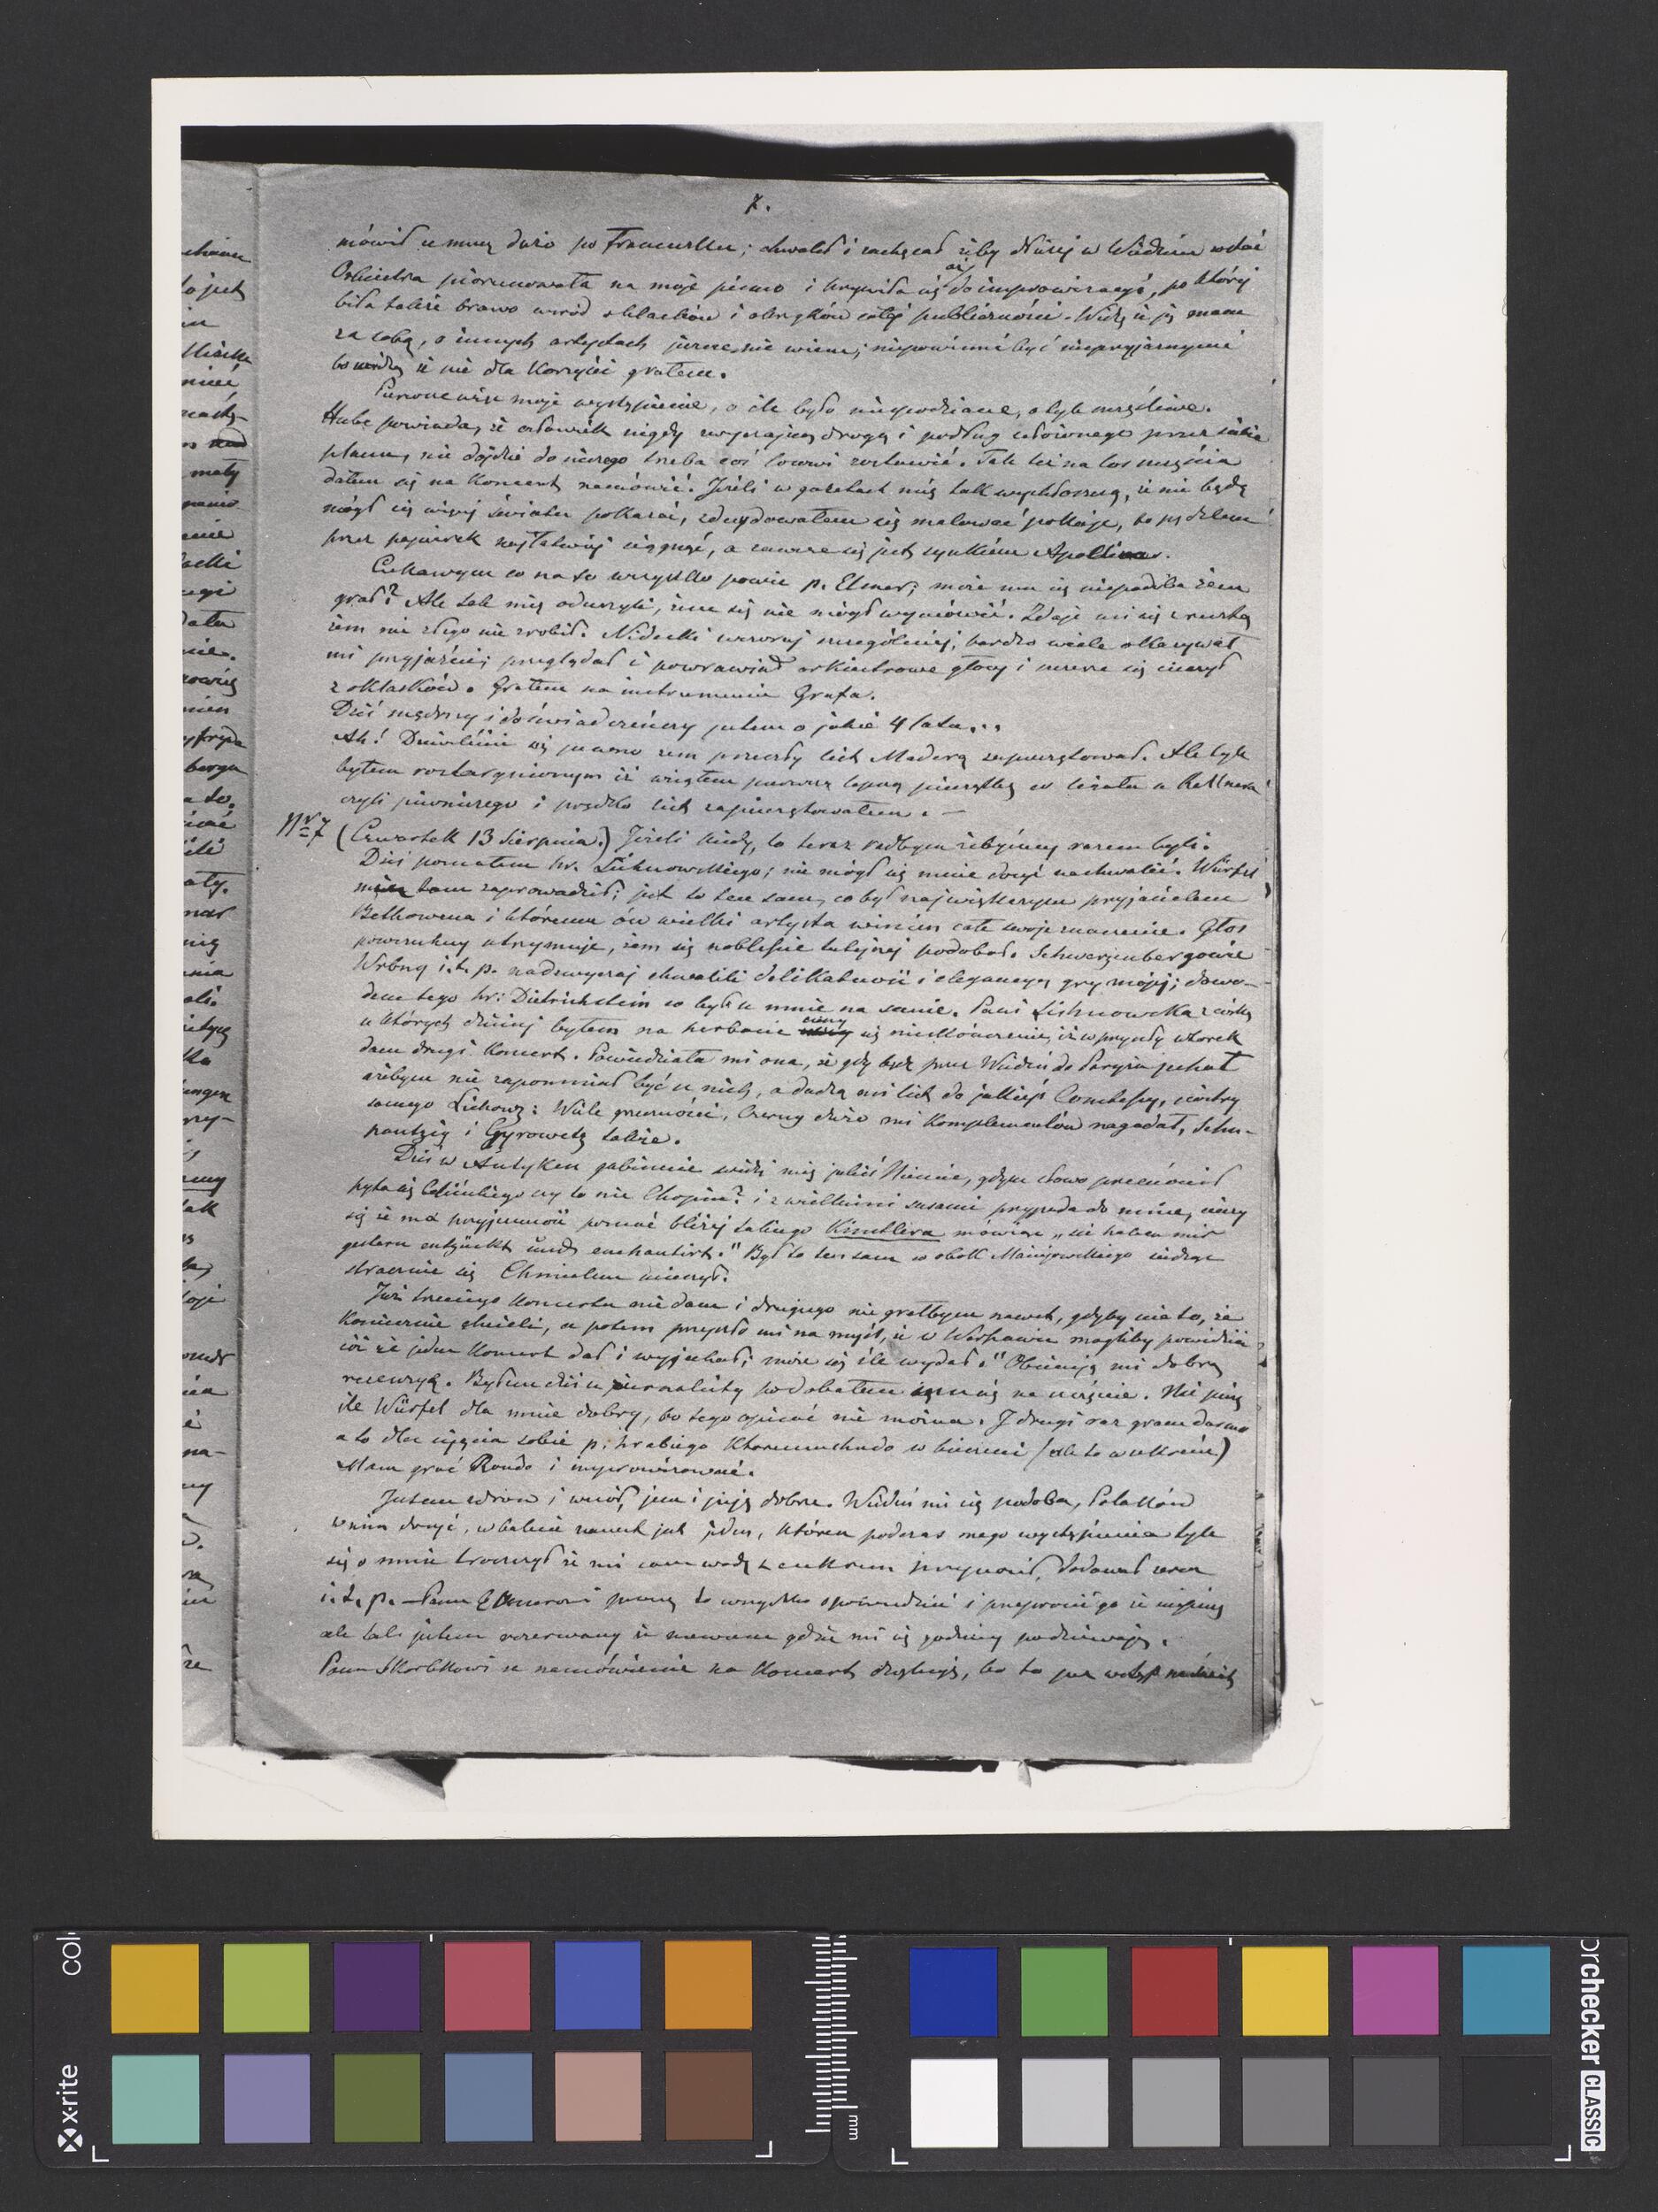 7.
mówił ze mną dużo po francusku; chwalił i zachęcał żeby dłużej w Wiedniu zostać
Orkiestra piorunowała na moje pismo i krzywiła się aż do improwizacyi, po której
biła także brawo wśród oklasków i okrzyków całej publiczności. Widzę iż ją mam
za sobą, o innych artystach jeszcze nie wiem; niepowinni być nieprzyjaznymi
bo widzą iż nie dla korzyści grałem.
Pierwsze więc moje wystąpienie, o ile było niespodziane, o tyle szczęśliwe.
Hube powiada, iż człowiek nigdy zwyczajną drogą i podług ułożonego przez siebie
planu, nie dojdzie do niczego trzeba coś losowi zostawić. Tak też na los szczęścia
dałem się na koncert namówić. Jeżeli w gazetach mię tak wychłoszczą, iż nie będę
mógł się więcej światu pokazać, zdecydowałem się malować pokoje, bo pędzlem
przez papierek najłatwiej ciągnąć, a zawsze się jest synkiem Apollina.
Ciekawym co na to wszystko powie p. Elsner; może mu się niepodoba żem
grał? Ale tak mię oduczyli, żem się nie mógł wymówić. Zdaje mi się z resztą
żem nic złego nie zrobił. Nidecki wczoraj szczególniej, bardzo wiele okazywał
mi przyjaźni; przeglądał i poprawiał orkiestrowe głosy i szczerze się cieszył
z oklasków. Grałem na instrumencie Grafa.
Dziś mędrszy i doświadczeńszy jestem o jakie 4 lata...
Ah! Dziwiliście się pewno żem przeszły list Maderą zapieczętował. Ale tyle
byłem roztargnionym iż wziąłem pierwszą lepszą pieczątkę co leżała u Kellnera
czyli piwniczego i prędko list zapieczętowałem. —
Nr 7 (Czwartek 13 Sierpnia.) Jeżeli kiedy, to teraz radbym żebyśmy razem byli.
Dziś poznałem hr. Lichnowskiego; nie mógł się mnie dosyć nachwalić. Würfel
mię tam zaprowadził; jest to ten sam, co był największym przyjacielem
Bethowena i któremu ów wielki artysta winien całe swoje znaczenie. Głos
powszechny utrzymuje, żem się noblesie tutejszej podobał. Schwarzenbergowie
Wrbny i.t.p. nadzwyczaj chwalili delikatność i elegancyą gry mojej; dowo-
dem tego hr: Dietrichstein co był u mnie na scenie. Pani Lichnowska z córką
u których dzisiaj byłem na herbacie cieszy się nieskończenie, iż w przyszły wtorek
dam drugi koncert. Powiedziała mi ona, iż gdy będę przez Wiedeń do Paryża jechał
ażebym nie zapomniał być u nich, a dadzą mi list do jakiejś Comtessy, siostry
samego Lichow: Wiele grzeczności, Czerny dużo mi komplementów nagadał, Schu-
pantzig i Gyrowetz także.
Dziś w Antyken gabinecie widzi mię jakiś Niemiec, gdym słowo przemówił
pyta się Celińskiego czy to nie Chopin? i z wielkimi susami przypada do mnie, cieszy
się iż ma przyjemność poznać bliżej takiego Künstlera mówiąc „sie haben mir
gestern entzückt und enchantirt." Był to ten sam co obok Maciejowskiego siedząc
strasznie się Chmielem cieszył.
Już trzeciego koncertu nie dam i drugiego nie grałbym nawet, gdyby nie to, że
koniecznie chcieli, a potem przyszło mi na myśl, iż w Warszawie mogliby powiedzieć
cóż że jeden koncert dał i wyjechał; może się źle wydał." Obiecują mi dobrą
recenzyę. Byłem dziś u żurnalisty podobałem mu się na szczęście. Nie piszę
ile Würfel dla mnie dobry, bo tego opisać nie można. I drugi raz gram darmo
a to dla ujęcia sobie p. hrabiego któremu chudo w kieszeni (ale to w sekrecie)
Mam grać Rondo i improwizować.
Jestem zdrów i wesół, jem i piję dobrze. Wiedeń mi się podoba, Polaków
w nim dosyć, w balecie nawet jest jeden, który podczas mego wystąpienia tyle
się o mnie troszczył iż mi sam wodę z cukrem przynosił, dodawał serca
i.t.p. — Panu Elsnerowi proszę to wszystko opowiedzieć i przeprosić go iż niepiszę
ale tak jestem rozerwany iż niewiem gdzie mi się godziny podziewają.
Panu Skarbkowi za namówienie na koncert dziękuję, bo to jest wstęp na świat